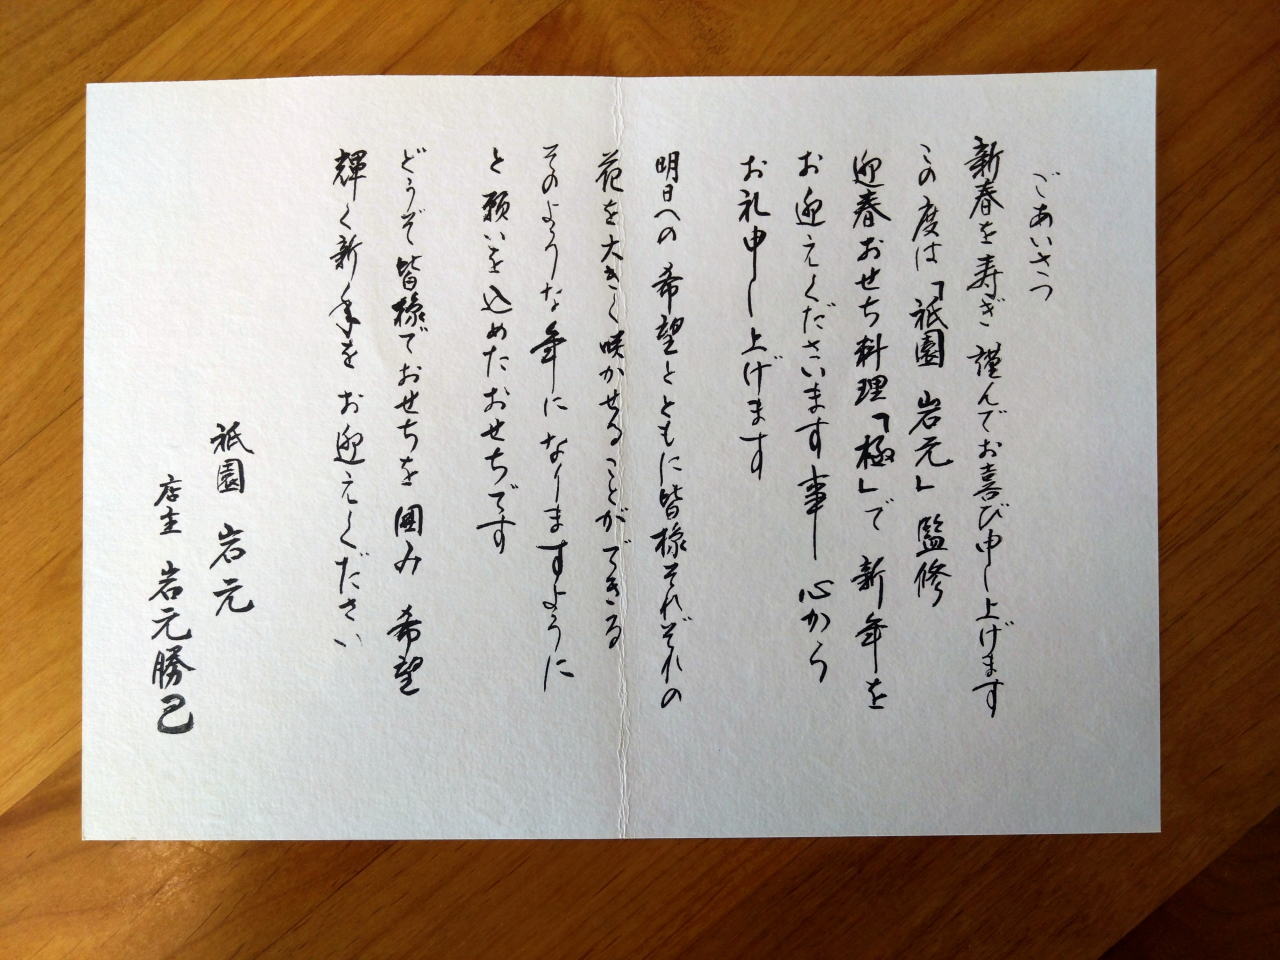 ごあいさつ
新春を寿ぎ 謹んでお喜び申し上げます
この度は「祇園 岩元」監修
迎春おせち料理「極」で 新年を
お迎えくださいます事 心から
お礼申し上げます
明日への希望とともに皆様それぞれの
花を大きく咲かせることができる
そのような年になりますように
と願いを込めたおせちです
どうぞ皆様でおせちを囲み 希望
輝く新年をお迎えください
祇園 岩元
店主 岩元勝己